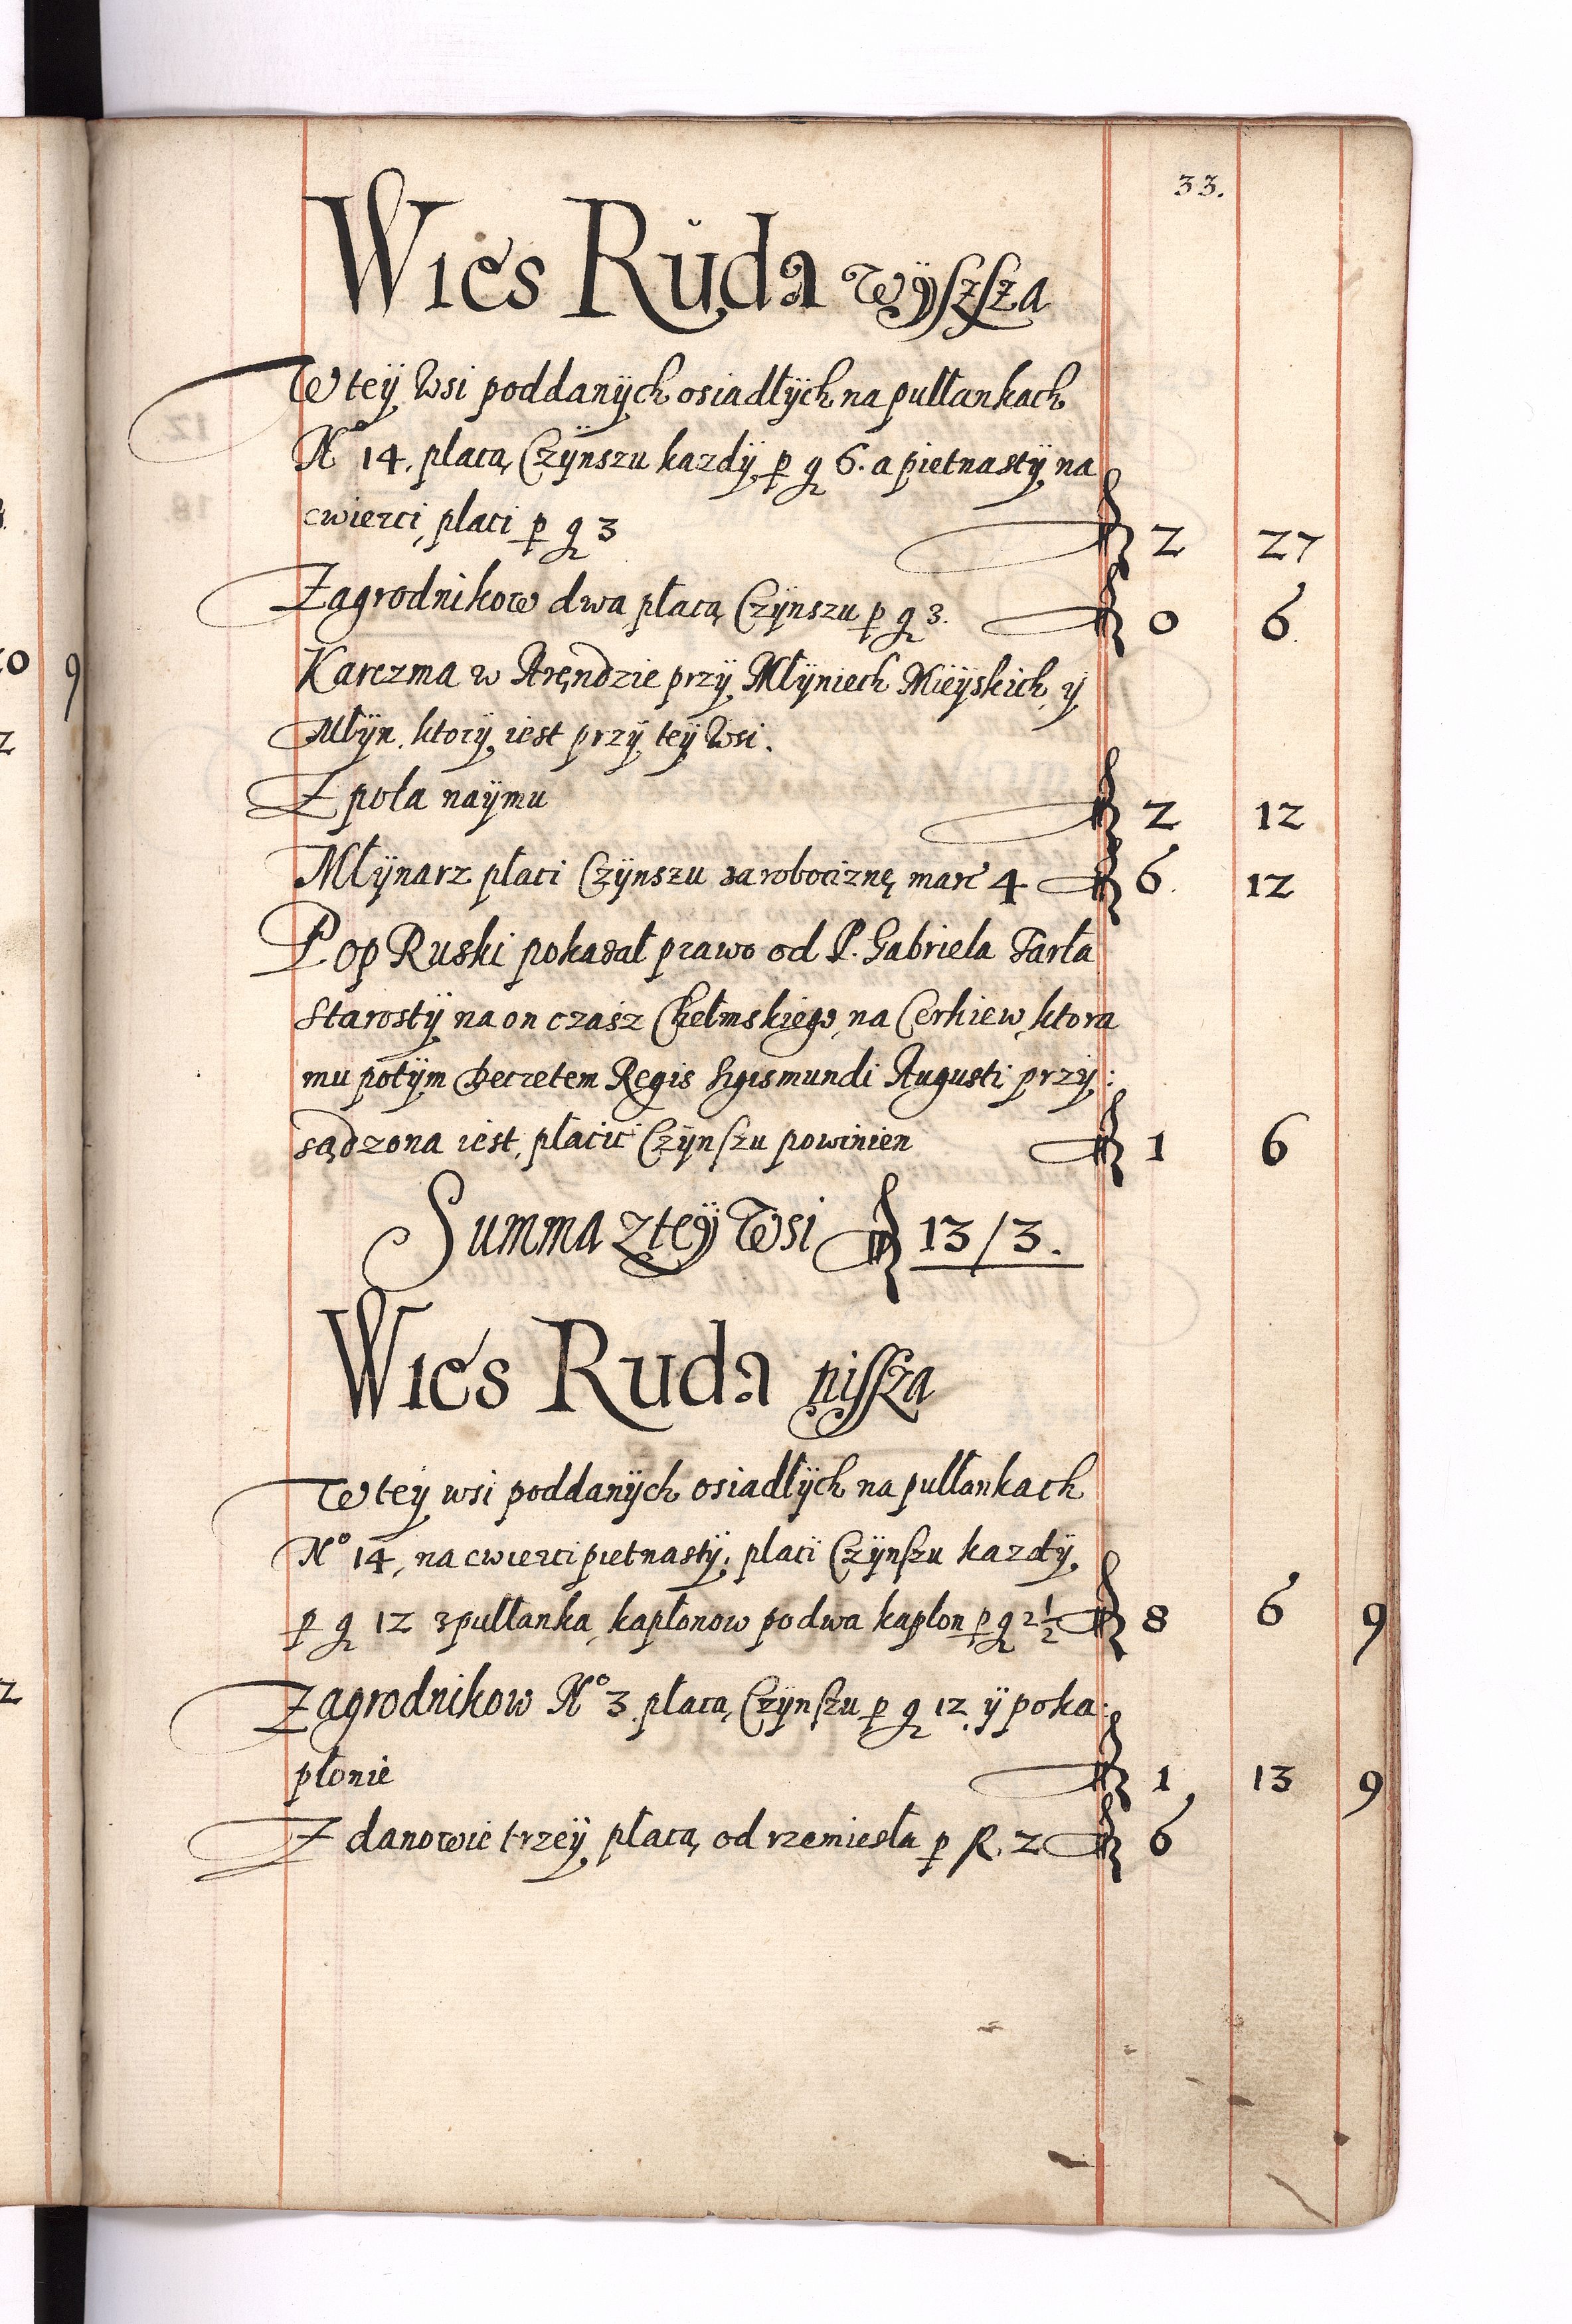 33.
Wies Ruda wÿszsza
W teÿ Wsi poddanÿch osiadłÿch na pułłankach
Nº 14. placą Czÿnszu kazdÿ p g 6. a pietnastÿ na
cwierci, placi p g 3 2 27
Zagrodnikow dwa płacą Czÿnszu p g 3. 0 6.
Karczma w Aręndzie przÿ Młÿniech Mieÿskich, ÿ
Młÿn, ktorÿ iest przÿ teÿ Wsi.
Z pola naÿmu 2 12
Młÿnarz płaci Czÿnszu za robociznę marc 4 6. 12
Pop Ruski pokazał prawo od P. Gabriela Tarła
Starostÿ na on czasz Chełmskiego, na Cerkiew, ktora
mu potÿm Decretem Regis Sigismundi Augusti przÿ:
sądzona iest, płacić Czÿnszu powinien 1 6
Summa z teÿ Wsi 13/3.
Wies Ruda nissza
W teÿ wsi poddanÿch osiadłÿch na pułłankach
Nº 14, na cwierci pietnastÿ, placi Czÿnszu kazdÿ
p g 12 z pułłanka, kapłonow po dwa kapłon p g 2½ 8 6 9
Zagrodnikow Nº 3 płacą Czÿnszu p g 12 ÿ po ka:
płonie 1 13 9
Z danowie trzeÿ płacą od rzemiesła p R. 2 6